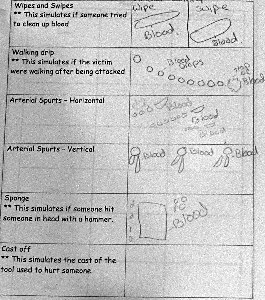 Wipes and Swipes
** This simulates if someone tried
to clean up blood
Wipe
Swipe
Blood
Blood
Walking drip
** This simulates if the victim
were walking after being attacked
Blood
Drips
Blood
Arterial Spurts – Horizontal
Blood
Blood
Arterial Spurts – Vertical
Blood
Blood
Blood
Sponge
** This simulates if someone hit
someone in head with a hammer.
Blood
Cast off
** This simulates the cast of the
tool used to hurt someone.